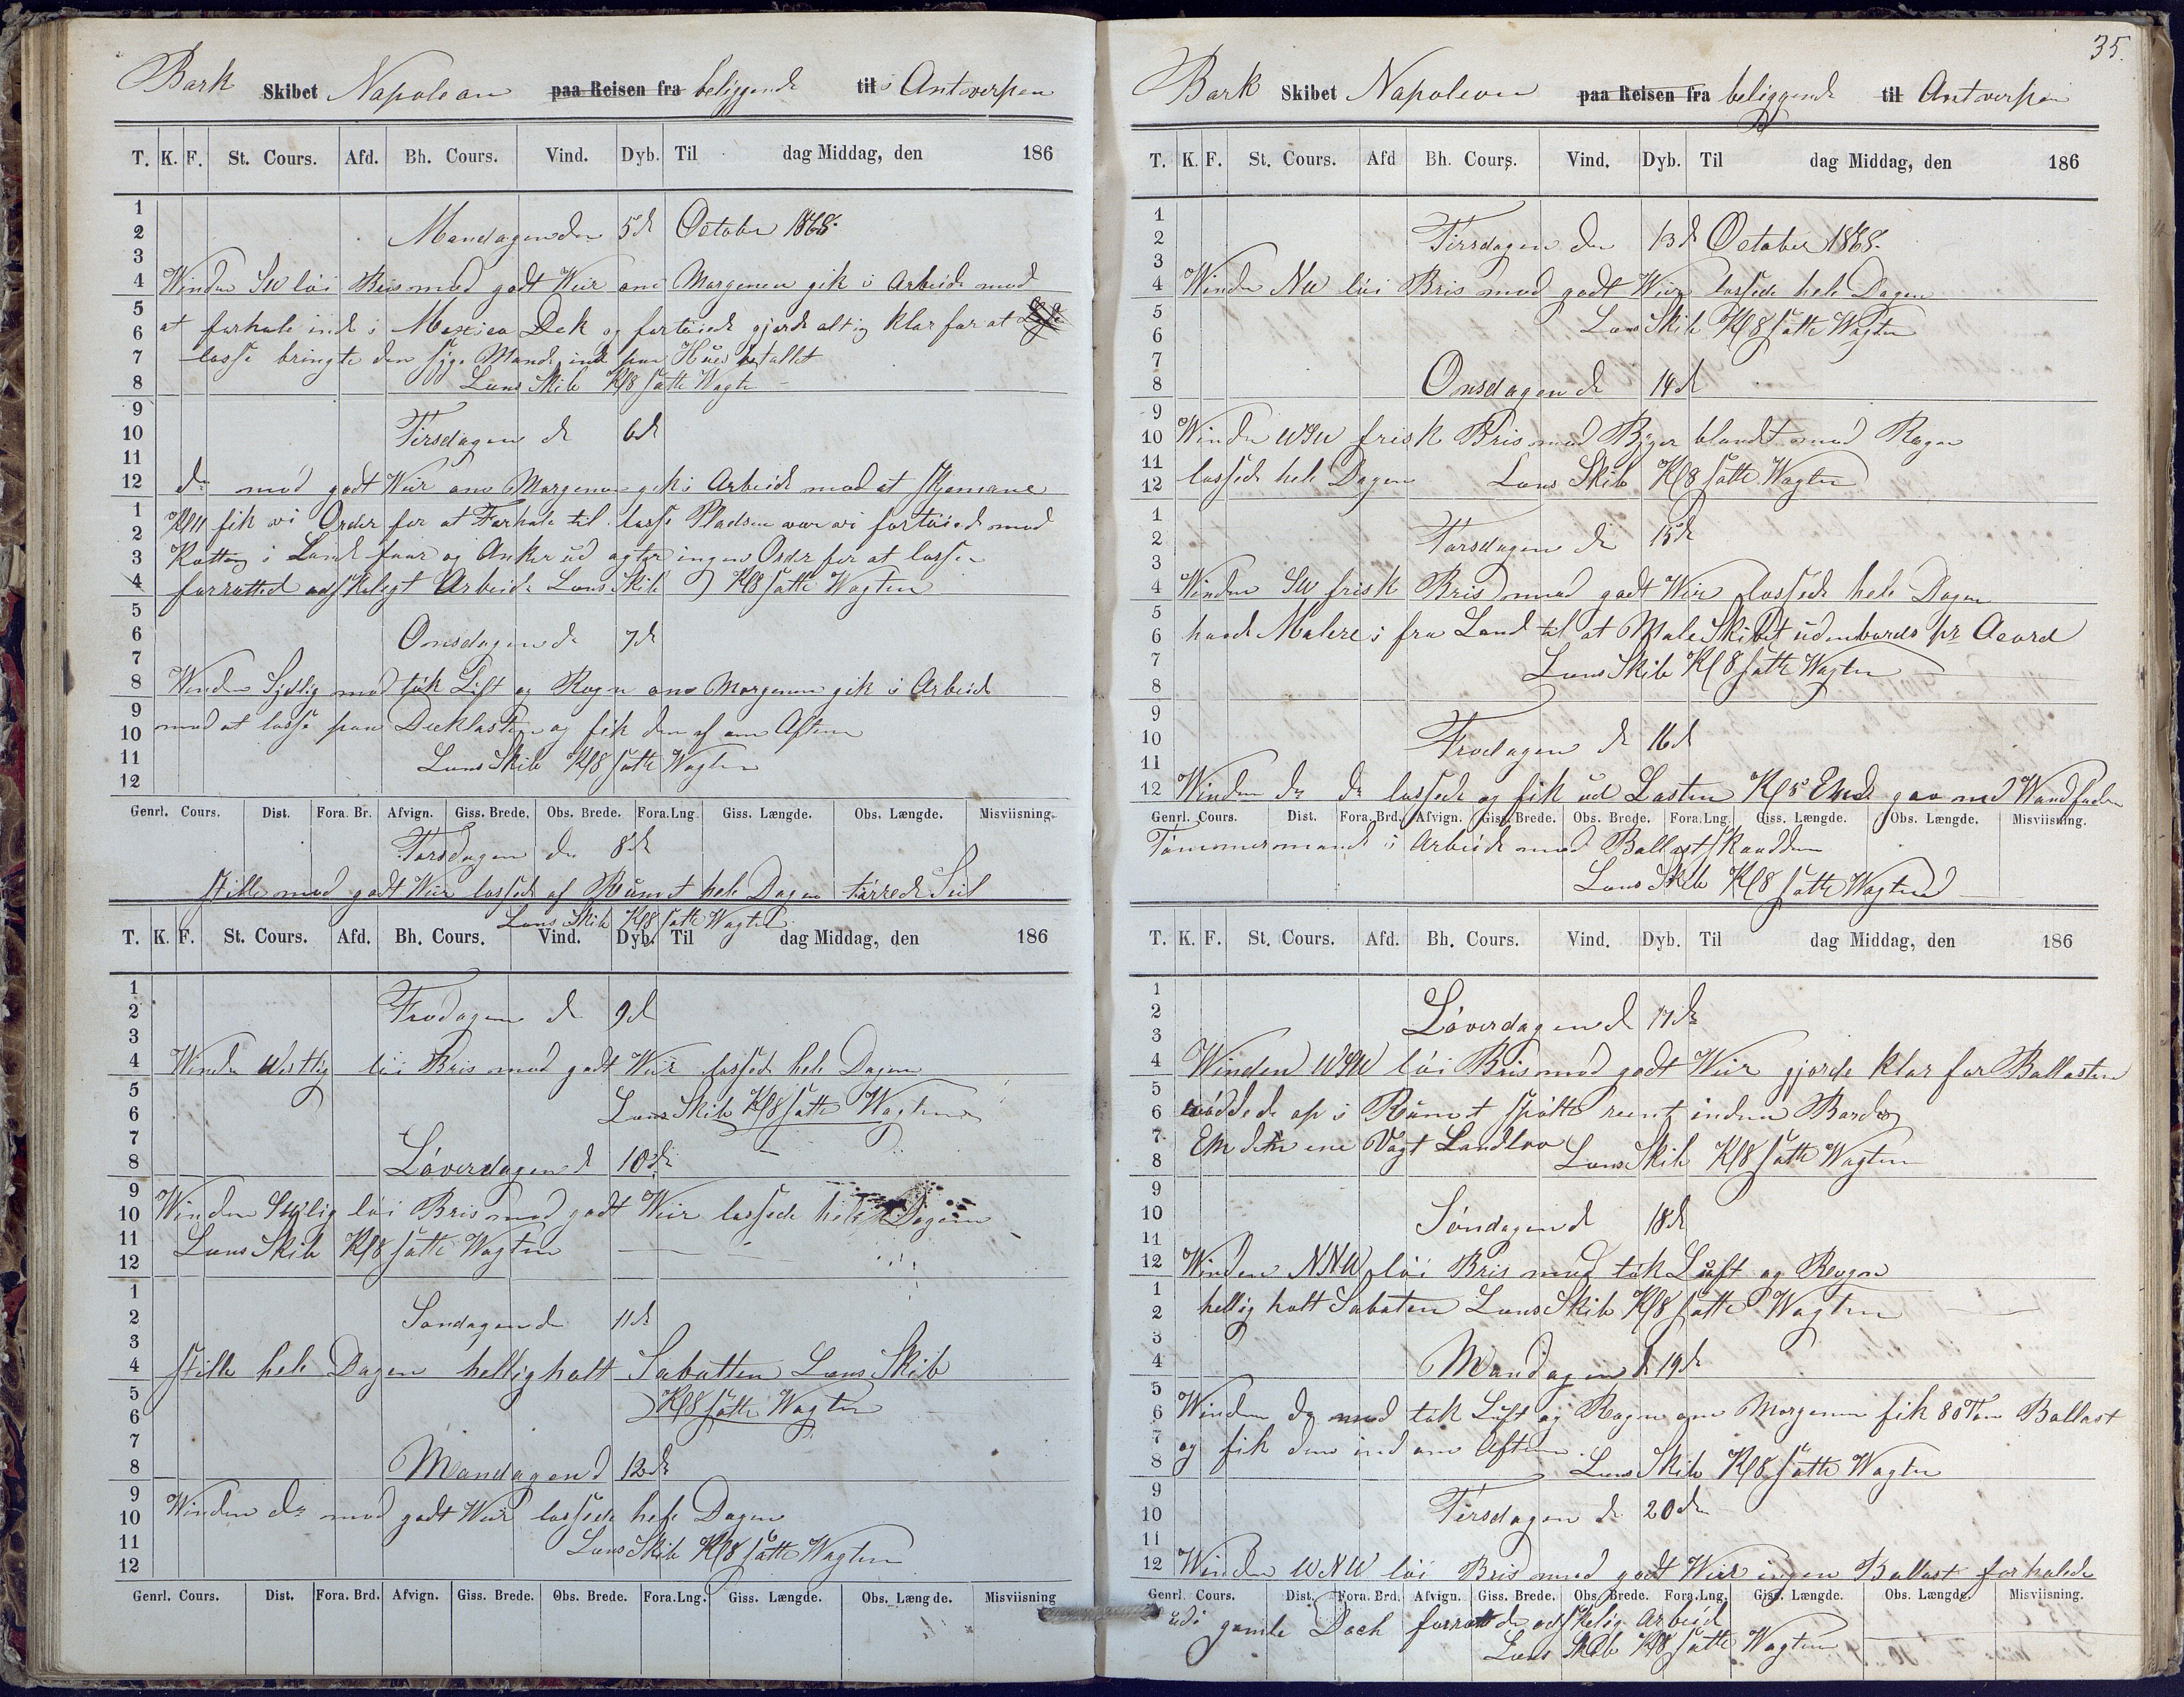 Bark Skibet Napolean paa Reisen fra beliggende til i Antwerpen
T. K. F. St. Cours. Afd. Bh. Cours. Vind. Dyb. Til dag Middag, den 186
1
2 Mandagen den 5d October 1868.
3
4 Winden SW löi Bris med godt Weir om Morgenen gik i Arbeide med
5
6 at forhale ind i Mexico Dok og fortøiede gjorde alting klar for at
7 losse bringte den syge Mand ind paa
8 Læns Skib Kl 8 satte Wagten
9
10 Tirsdagen d 6d
11
12 do med godt Weir om Morgenen gik i Arbeide med at
1 Kl 11 fik vi Order for at Forhale til losse Pladsen var vi fortøiede med
2
3 i Land for og Anker ud agter ingen Order for at losse
4 forretted adskeligt Arbeide Læns Skib Kl 8 satte Wagten
5
6 Onsdagen d 7d
7
8 Winden Sydlig med tök Luft og Regn om Morgenen gik i Arbeide
9
10 med at losse paa Deklasten og fik den af om Aftenen
11 Læns Skib Kl 8 satte Wagten
12
Genrl. Cours. Dist. Fora. Br. Afvign. Giss. Brede. Obs. Brede. Fora. Lng. Giss. Længde. Obs. Længde. Misviisning.
Torsdagen d 8d
stille med godt Weir lossede af Rümet hele Dagen tørrede Seil
Læns Skib Kl 8 satte Wagten
T. K. F. St. Cours. Afd. Bh. Cours. Vind. Dyb. Til dag Middag, den 186
1
2 Fredagen d 9d
3
4 Winden Westlig löi Bris med godt Weir lossede hele Dagen
5
6 Læns Skib Kl 8 satte Wagten
7
8 Löverdagen d 10d
9
10 Winden löi Bris med godt Weir lossede hele Dagen
11 Læns Skib Kl 8 satte Wagten
12
1
2 Søndagen d 11d
3
4 stille hele Dagen helligholt Sabatten Læns Skib
5
6 Kl 8 satte Wagten
7
8 Mandagen d 12d
9
10 Winden do med godt Weir lossede hele Dagen
11 Læns Skib Kl 8 satte Wagten
12
Genrl. Cours. Dist. Fora. Brd. Afvign. Giss. Brede. Obs. Brede. Fora.Lng. Giss. Længde. Obs. Længde. Misviisning
35.
Bark Skibet Napoleon paa Reisen fra beliggende til Antwerpen
T. K. F. St. Cours. Afd Bh. Cours. Vind. Dyb. Til dag Middag, den 186
1
2 Tirsdagen den 13d October 1868.
3
4 Winden NW löi Bris med godt Weir lossede hele Dagen
5
6 Læns Skib Kl 8 satte Wagten
7
8 Onsdagen d 14d
9
10 Winden WSW frisk Bris med Byger blandt med Regn
11
12 lossede hele Dagen Læns Skib Kl 8 satte Wagten
1
2 Torsdagen d 15d
3
4 Winden SW frisk Bris med godt Weir lossede hele Dagen
5
6 havde Malere i fra Land til at Male Skibet udenbords pr Acord
7 Læns Skib Kl 8 satte Wagten
8
9
10 Fredagen d 16d
11
12 Winden do do lossede og fik ud Lasten Kl 5 gav ned Wandfaden
Genrl. Cours. Dist. Fora. Brd. Afvign. Giss. Brede. Obs. Brede. Fora. Lng. Giss. Længde. Obs. Længde. Misviisning.
Tømmermand i Arbeide med Ballast
Læns Skib Kl 8 satte Wagten
T. K. F. St. Cours. Afd. Bh. Cours. Vind. Dyb. Til dag Middag, den 186
1
2 Löverdagen d 17d
3
4 Winden WSW löi Bris med godt Weir gjorde klar for Ballasten
5
6 op i Rümet spølte reent inden Bords
7 den ene Vagt Landlov Læns Skib Kl 8 satte Wagten
8
9
10 Söndagen d 18d
11
12 Winden NNW löi Bris med tök Luft og Regn
1
2 hellig holt Sabaten Læns Skib Kl 8 satte Wagten
3
4 Mandagen d 19d
5
6 Winden do med tök Luft og Regn om Morgenen fik 80 Ton Ballast
7 og fik den ind om Aftenen
8 Læns Skib Kl 8 satte Wagten
9
10 Tirsdagen d 20d
11
12 Winden WNW löi Bris med godt Weir ingen Ballast forhalede
Genrl. Cours. Dist. Fora. Brd. Afvign. Giss. Brede. Obs. Brede. Fora. Lng. Giss. Længde. Obs. Længde. Misviisning.
ud i gamle Dock forrettede adskelig Arbeid
Læns Skib Kl 8 satte Wagten